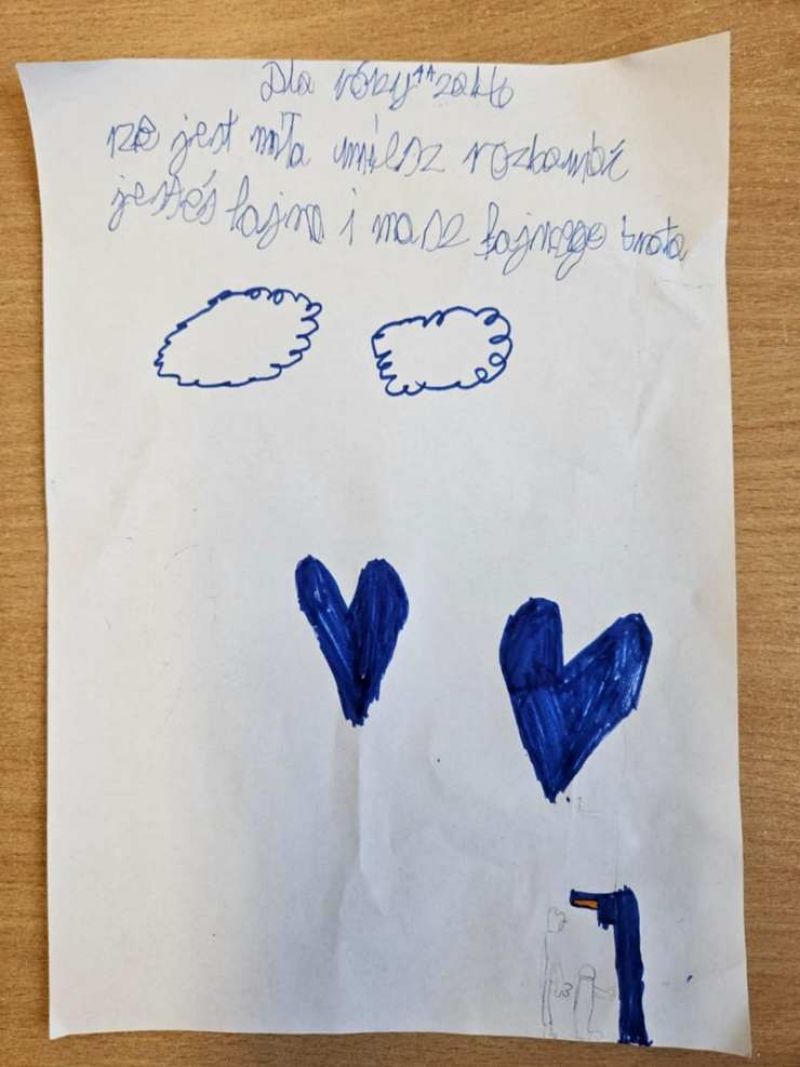 Dla róży za to
rze jest miła umiesz rozbawić
jesteś fajna i masz fajnego brata